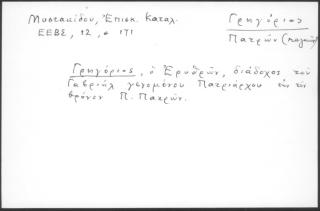 Μυστακίδου, Ἐπισκ. Καταλ.
ΕΕΒΣ, 12, σ 171
Γρηγόριος
Πατρῶν (Παλαιῶν)
Γρηγόριος, ὁ Ἐρυθρῶν, διάδοχος τοῦ
Γαβριὴλ γενομένου Πατριάρχου εἰς τὸν
θρόνον Π. Πατρῶν.